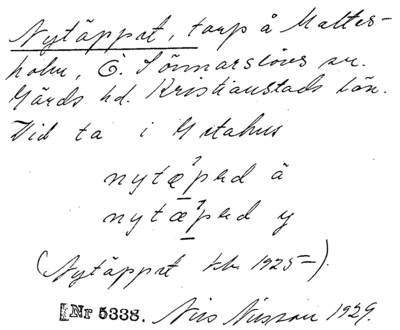 Nytäppet, torp å Mattes-
holm, Ö. Sönnarslövs sn.
Gärds hd. Kristianstads län.
Vid ta i
nytæpəd å
nytæpəd y
(Nytäppet kbr 1925–).
Nr 5338. Nils Nilsson 1929.